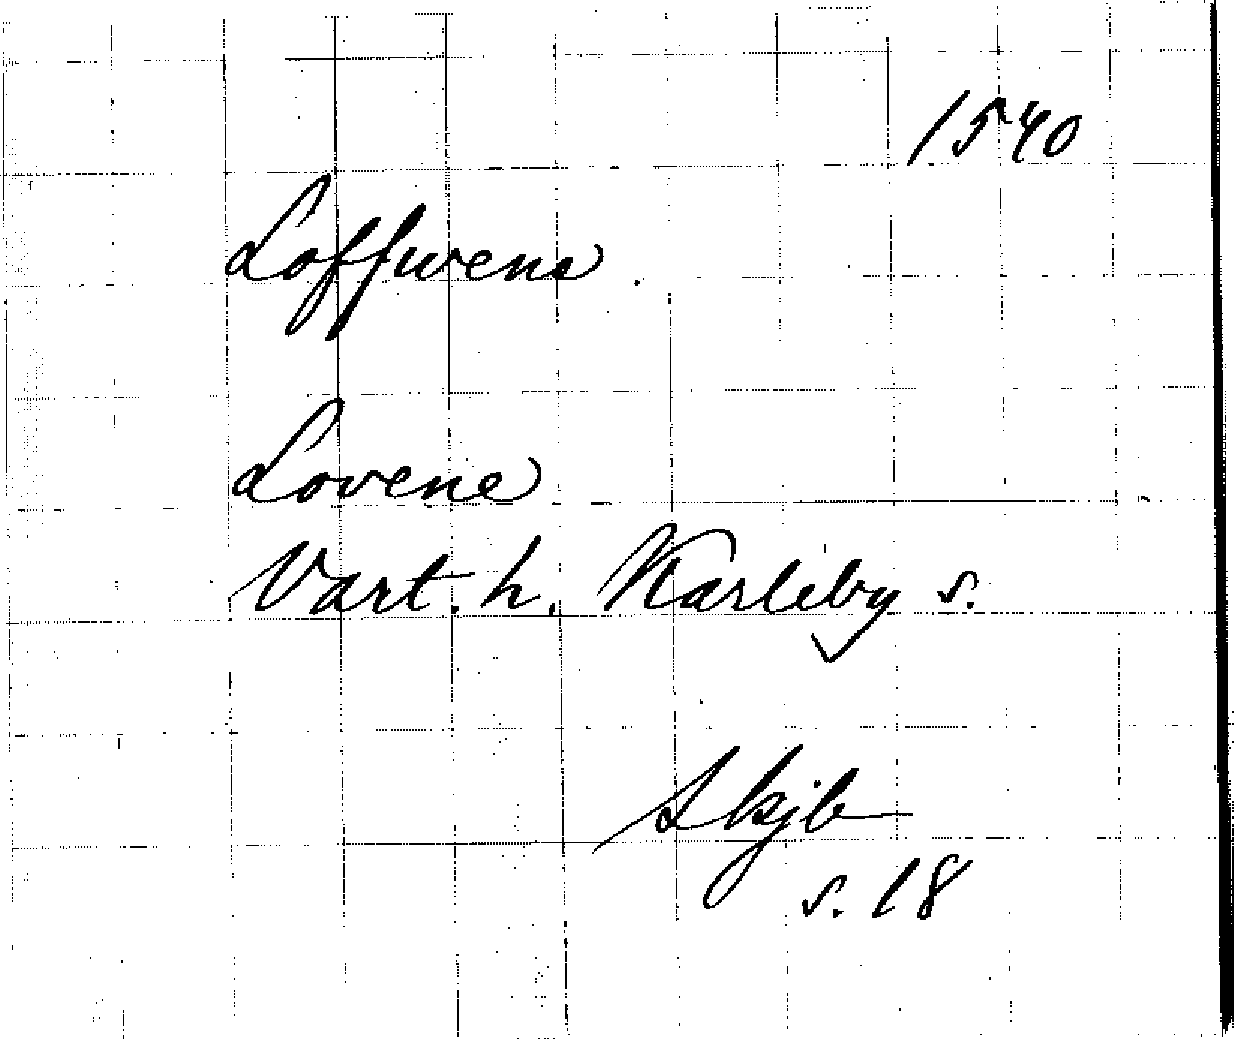 1540
Loffwene.
Lovene
Vart. h. Karleby s.
Skjb
s. 18